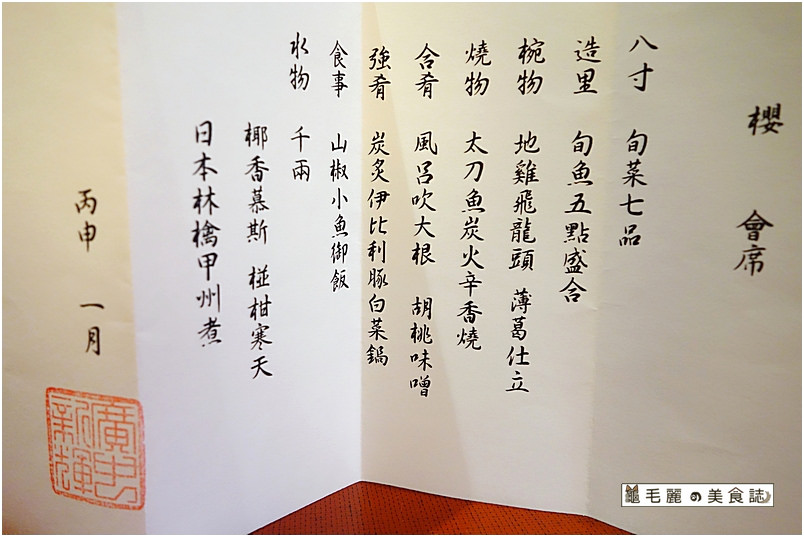 櫻 會席
八寸 旬菜七品
造里 旬魚五點盛合
椀物 地雞飛龍頭 薄葛仕立
燒物 太刀魚炭火辛香燒
合肴 風呂吹大根 胡桃味噌
強肴 炭炙伊比利豚白菜鍋
食事 山椒小魚御飯
水物 千兩
椰香慕斯 椪柑寒天
日本林檎甲州煮
丙申 一月
龜毛麗の美食誌